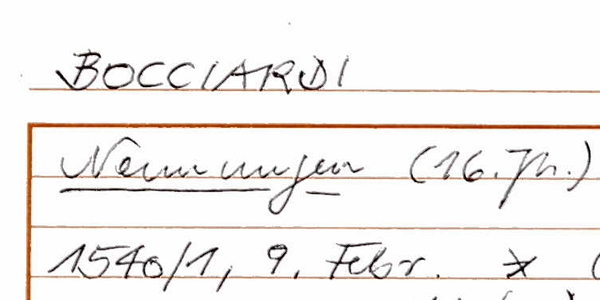 BOCCIARDI
Nennungen (16. Jh.)
1540/1, 9. Febr. * (